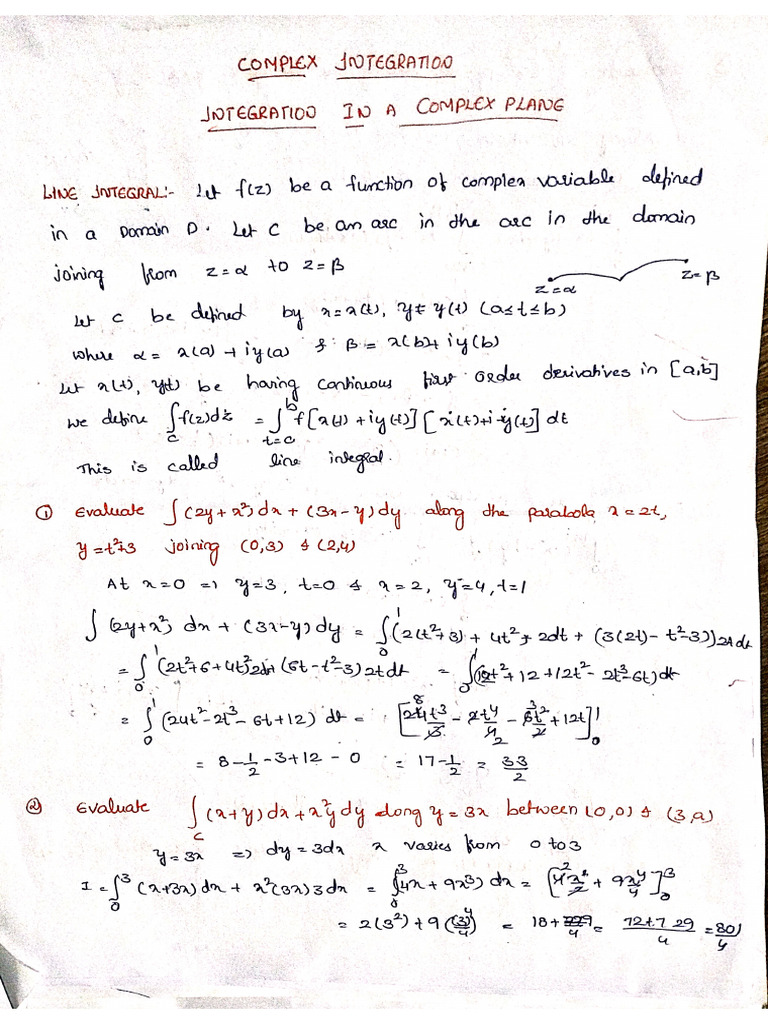 COMPLEX INTEGRATION
INTEGRATION IN A COMPLEX PLANE
LINE INTEGRAL:- Let f(z) be a function of complex variable defined
in a Domain D. Let C be an arc in the arc in the domain
joining from z=α to z=β
z=α z=β
Let C be defined by x=x(t), y= y(t) (a≤t≤b)
where α= x(a)+iy(a) & β= x(b)+iy(b)
Let x(t), y(t) be having continuous first order derivatives in [a,b]
we define ∫_C f(z)dz = ∫_{t=a}^{b} f[x(t)+iy(t)][ẋ(t)+iẏ(t)]dt
This is called line integral.
① Evaluate ∫(2y+x²)dx+(3x-y)dy along the parabola x=2t,
y=t²+3 joining (0,3) & (2,4)
At x=0 => y=3, t=0 & x=2, y=4, t=1
∫(2y+x²)dx+(3x-y)dy = ∫_0^1 (2(t²+3)+4t²). 2dt+(3(2t)-t²-3))2tdt
= ∫_0^1 (2t²+6+4t²)2dt+(6t-t²-3)2tdt = ∫_0^1 (12t²+12+12t²-2t³-6t)dt
= ∫_0^1 (24t²-2t³-6t+12) dt = [24t³/3 - 2t⁴/4 - 6t²/2 + 12t]_0^1
= 8-1/2-3+12-0 = 17-1/2 = 33/2
② Evaluate ∫_C (x+y)dx+x²y dy along y=3x between (0,0) & (3,9)
y=3x => dy=3dx x varies from 0 to 3
I=∫_0^3 (x+3x)dx+x²(3x)3dx = ∫_0^3 (4x+9x³)dx = [4x²/2 + 9x⁴/4]_0^3
= 2(3²)+9(3)⁴/4 = 18+729/4 = 72+729/4 = 801/4